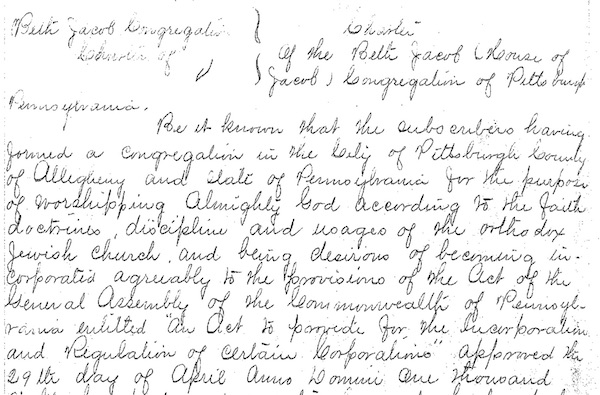 Beth Jacob Congregation
Charter of
Charter
Of the Beth Jacob (House of
Jacob) Congregation of Pittsburgh
Pennsylvania.
Be it known that the subscribers having
formed a congregation in the City of Pittsburgh County
of Allegheny and State of Pennsylvania for the purpose
of worshipping Almighty God according to the faith
doctrines, discipline and usages of the orthodox
Jewish church, and being desirous of becoming in-
corporated agreeably to the provisions of the Act of the
General Assembly of the Commonwealth of Pennsyl-
vania entitled "An Act to provide for the Incorporation
and Regulation of certain Corporations" approved the
29th day of April Anno Domini One thousand